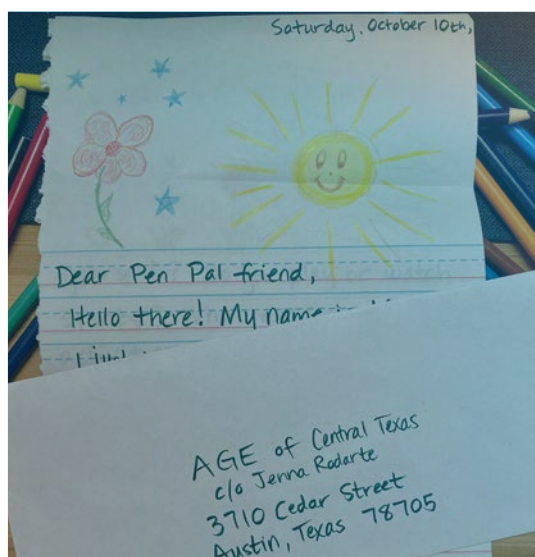 Saturday, October 10th,
Dear Pen Pal friend,
Hello there! My name
AGE of Central Texas
c/o Jenna Rodarte
3710 Cedar Street
Austin, Texas 78705